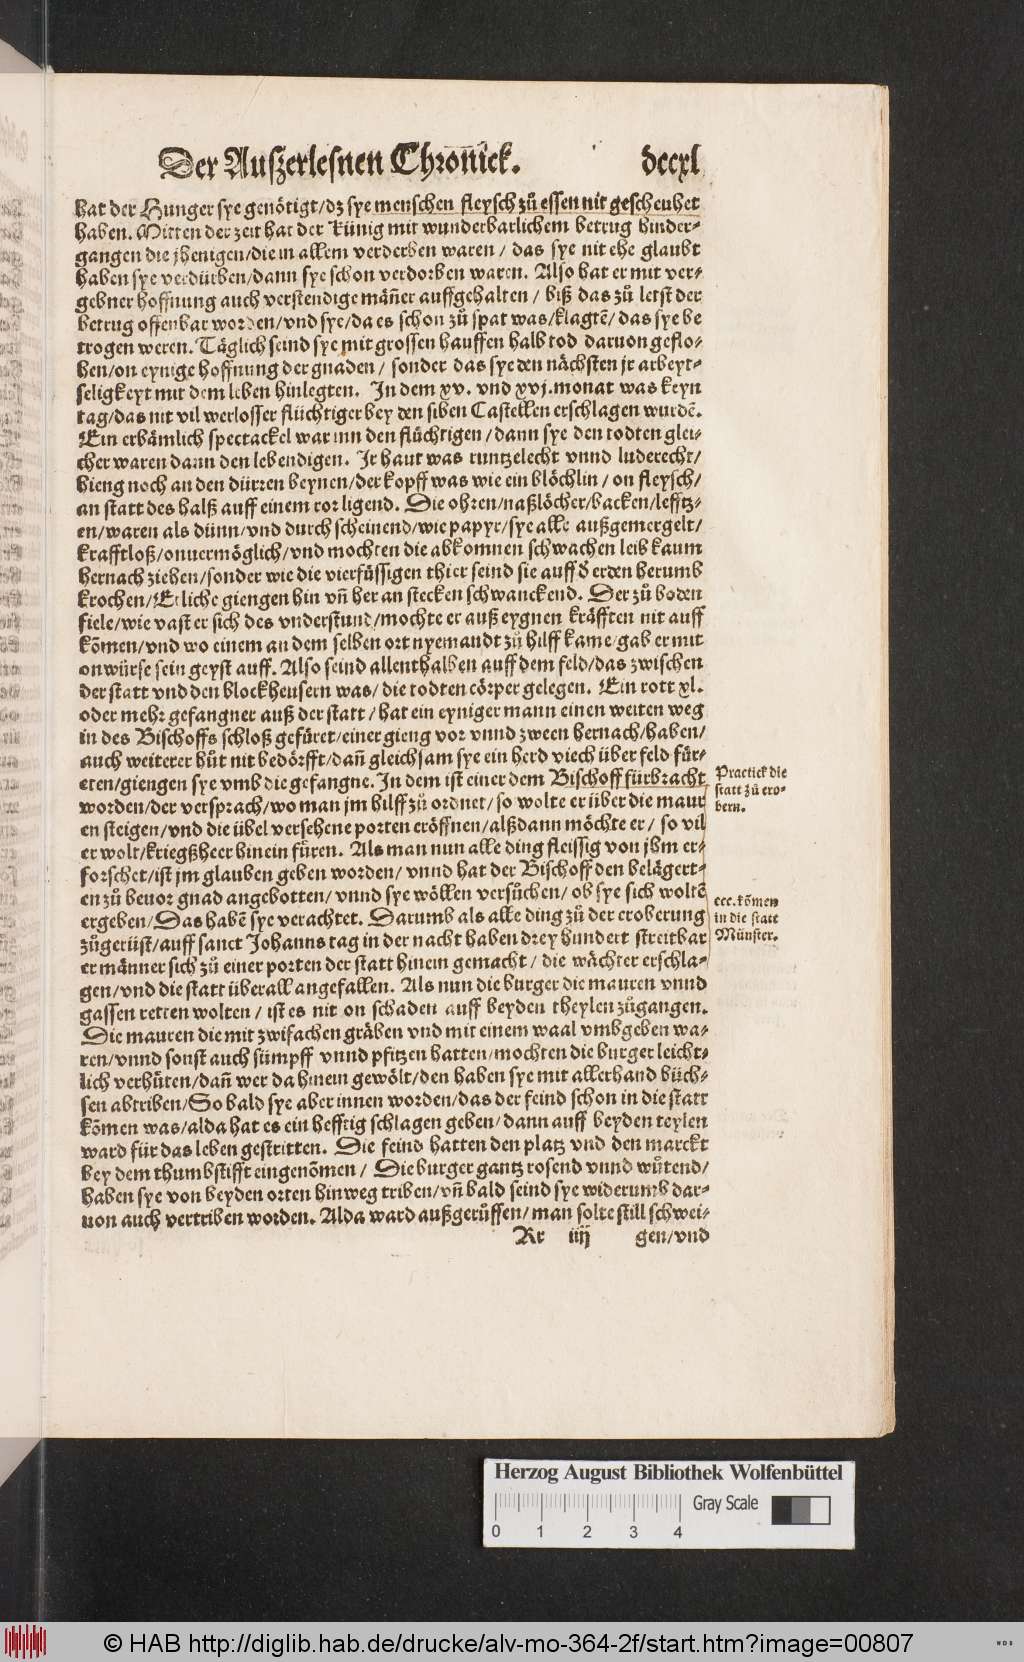 Der Außzerlesnen Chron̄ick. dccxl
hat der Hunger sye genötigt/dz sye menschen fleysch zů essen nit gescheuhet
haben. Mitten der zeit hat der Künig mit wunderbarlichem betrug hinder-
gangen die jhenigen/die in allem verderben waren / das sye nit ehe glaubt
haben sye verdürben/dann sye schon verdorben waren. Also hat er mit ver-
gebner hoffnung auch verstendige mäñer auffgehalten / biß das zů letst der
betrug offenbar worden/vnd sye/da es schon zů spat was/klagtē/das sye be
trogen weren. Täglich seind sye mit grossen hauffen halb tod daruon geflo-
hen/on eynige hoffnung der gnaden / sonder das sye den nächsten jr arbeyt-
seligkeyt mit dem leben hinlegten. In dem xv. vnd xvj. monat was keyn
tag/das nit vil werlosser flüchtiger bey den siben Castellen erschlagen wurdē.
Ein erbämlich spectackel war inn den flüchtigen/dann sye den todten glei-
cher waren dann den lebendigen. Jr haut was runtzelecht vnnd luderecht/
hieng noch an den dürren beynen/der kopff was wie ein blöchlin / on fleysch/
an statt des halß auff einem ror ligend. Die ohren/naßlöcher/backen/lefftz-
en/waren als dünn/vnd durchscheinend/wie papyr/sye alle außgemergelt/
krafftloß/onvermöglich/vnd mochten die abkomnen schwachen leib kaum
hernach ziehen/sonder wie die vierfüssigen thier seind sie auff d̄ erden herumb
krochen/Etliche giengen hin vn̄ her an stecken schwanckend. Der zů boden
fiele/wie vast er sich des vnderstund/mochte er auß eygnen kräfften nit auff
kōmen/vnd wo einem an dem selben ort nyemandt zů hilff kame/gab er mit
onwürse sein geyst auff. Also seind allenthalben auff dem feld/das zwischen
der statt vnd den blockheusern was/ die todten cörper gelegen. Ein rott xl.
oder mehr gefangner auß der statt / hat ein eyniger mann einen weiten weg
in des Bischoffs schloß gefüret/einer gieng vor vnnd zween hernach/haben/
auch weiterer hůt nit bedörfft/dan̄ gleichsam sye ein herd viech über feld für-
eten/giengen sye vmb die gefangne. In dem ist einer dem Bischoff fürbracht
worden/der versprach/wo man jm hilff zů ordnet/so wolte er über die maur
en steigen/vnd die übel versehene porten eröffnen/alßdann möchte er / so vil
er wolt/kriegßheer hinein füren. Als man nun alle ding fleissig von jhm er-
forschet/ist jm glauben geben worden/ vnnd hat der Bischoff den belägert-
en zů beuor gnad angebotten/ vnnd sye wöllen versůchen/ ob sye sich woltē
ergeben/Das habē sye verachtet. Darumb als alle ding zů der eroberung
zůgerüst/auff sanct Johanns tag in der nacht haben drey hundert streitbar
er männer sich zů einer porten der statt hinein gemacht / die wächter erschla-
gen/vnd die statt überall angefallen. Als nun die burger die mauren vnnd
gassen retten wolten / ist es nit on schaden auff beyden theylen zůgangen.
Die mauren die mit zwifachen gräben vnd mit einem waal vmbgeben wa-
ren/vnnd sonst auch sümpff vnnd pfitzen hatten/mochten die burger leicht-
lich verhůten/dan̄ wer da hinein gewölt/den haben sye mit allerhand büch-
sen abtriben/So bald sye aber innen worden/das der feind schon in die statt
kōmen was/alda hat es ein hefftig schlagen geben/dann auff beyden teylen
ward für das leben gestritten. Die feind hatten den platz vnd den marckt
bey dem thumbstifft eingenōmen / Die burger gantz rosend vnnd wůtend/
haben sye von beyden orten hinweg triben/vn̄ bald seind sye widerumb dar-
uon auch vertriben worden. Alda ward außgerůffen/man solte still schwei-
Rr iiij gen/vnd
Practick die
statt zů ero-
bern.
ccc. kōmen
in die statt
Münster.
Herzog August Bibliothek Wolfenbüttel
Gray Scale
0 1 2 3 4
© HAB http://diglib.hab.de/drucke/alv-mo-364-2f/start.htm?image=00807